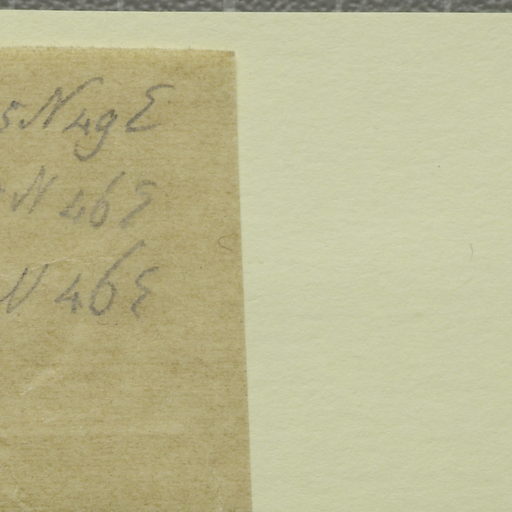 5 N 49 E
N 46 E
N 46 E